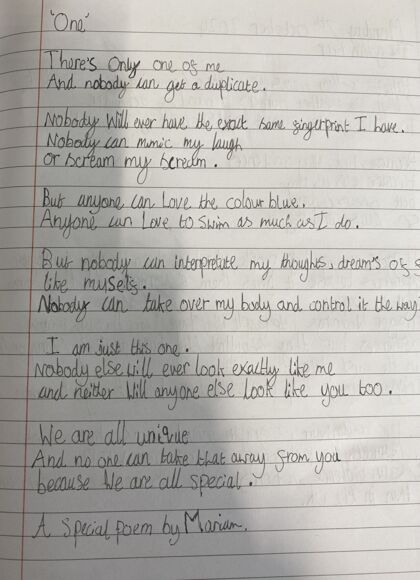 'One'
There's Only one of me
And nobody can get a duplicate.
Nobody Will ever have the exact same fingerprint I have.
Nobody can mimic my laugh
or scream my scream.
But anyone can Love the colour blue.
Anyone can Love to swim as much as I do.
But nobody can interpretate my thoughts, dream's of s
like myself.
Nobody can take over my body and control it the way
I am just this one.
Nobody else will ever look exactly like me
and neither Will anyone else look like you too.
We are all unique
And no one can take that away from you
because We are all special.
A Special poem by Mariam.